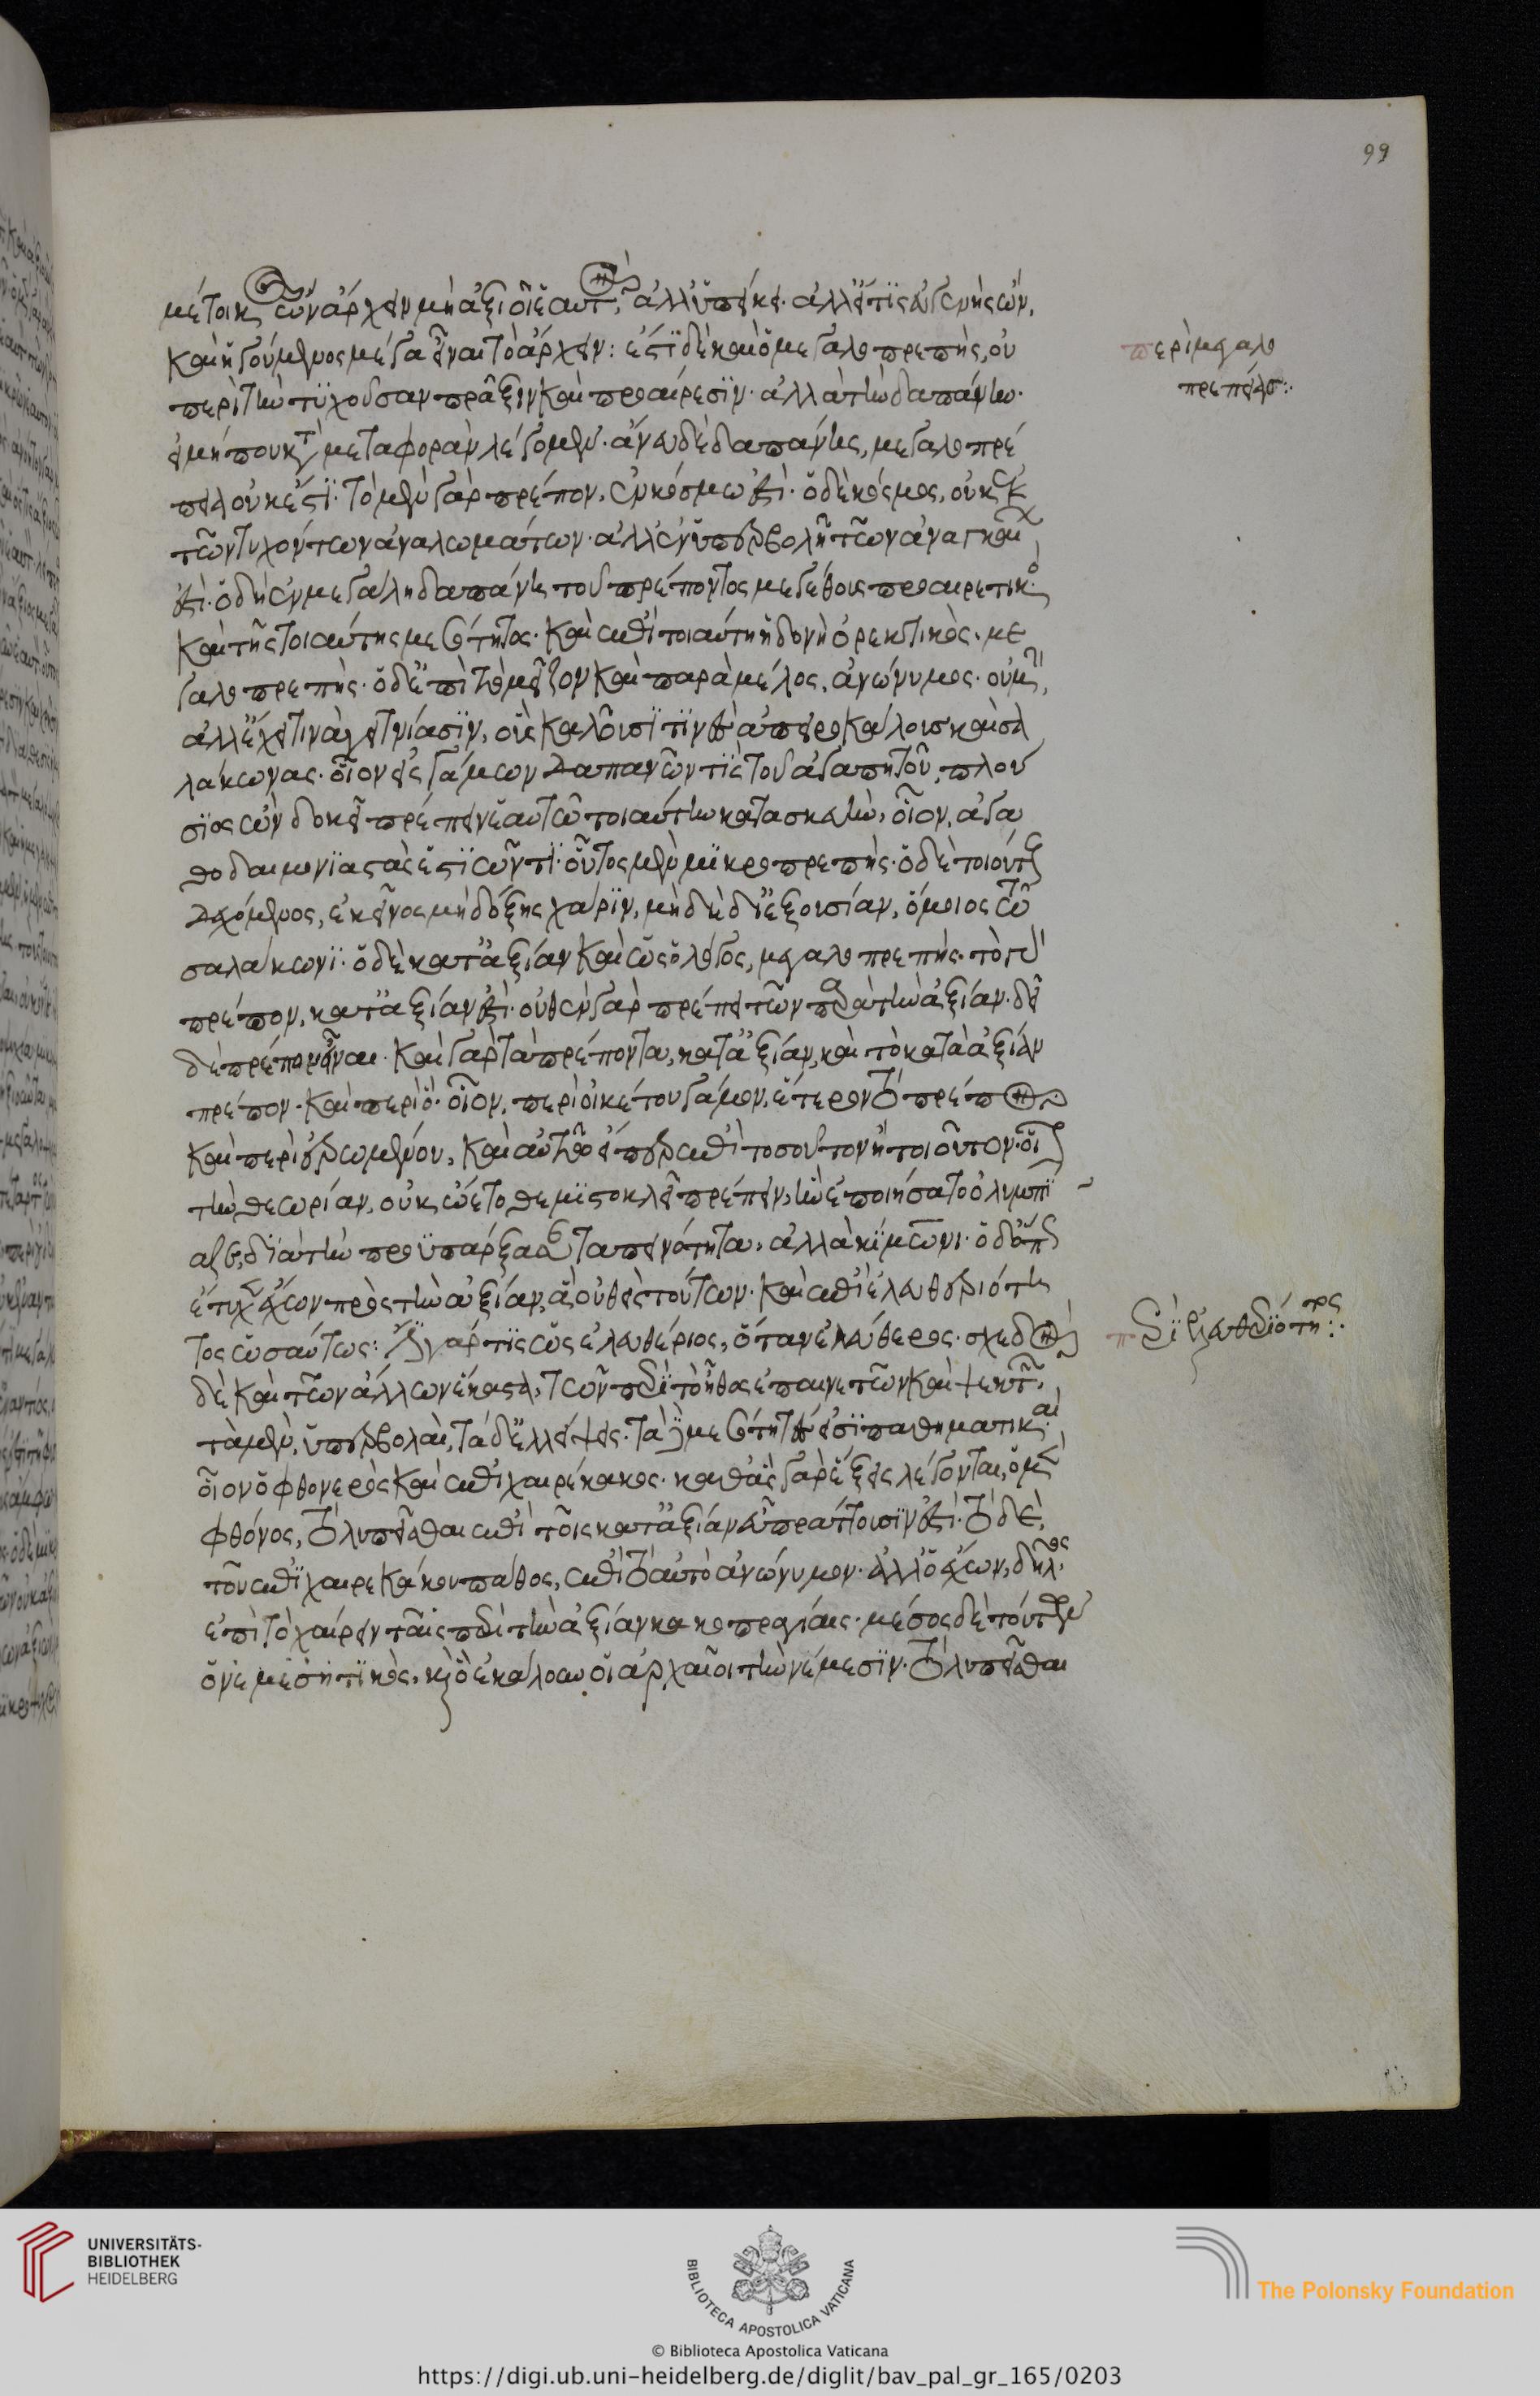 99
μέτοικος ὢν ἄρχειν μὴ ἀξιοῖ ἑαυτὸν, ἀλλ' ὑπείκει· ἀλλ' εἴ τις εὐγενὴς ὢν,
καὶ ἡγούμενος μέγα εἶναι τὸ ἄρχειν: ἔστι δὲ καὶ ὁ μεγαλοπρεπὴς, οὐ
περὶ τὴν τυχοῦσαν πρᾶξιν καὶ προαίρεσιν· ἀλλὰ τὴν δαπάνην·
εἰ μή που κατὰ μεταφορὰν λέγομεν· ἄνευ δὲ δαπάνης, μεγαλοπρέ
πεια οὐκ ἔστι· τὸ μὲν γὰρ πρέπον, ἐν κόσμω ἐστὶ· ὁ δὲ κόσμος, οὐκ ἐκ
τῶν τυχόντων ἀναλωμάτων· ἀλλ' ἐν ὑπερβολῆ τῶν ἀναγκαίων
ἐστὶ· ὁ δὴ ἐν μεγάλη δαπάνη τοῦ πρέποντος μεγέθους προαιρετικὸς
καὶ τῆς τοιαύτης μεσότητος· καὶ ἐπὶ τοιαύτη ἡδονῆ ὀρεκτικὸς, με
γαλοπρεπὴς· ὁ δ' ἐπὶ τὸ μεῖζον καὶ παρὰ μέλος, ἀνώνυμος· οὐ μὴν
ἀλλ' ἔχει τινὰ γειτνίασιν, οὓς καλοῦσί τινες ἀπειροκάλους καὶ σα
λάκωνας· οἷον εἰς γάμων δαπανῶν τίς τοῦ ἀγαπητοῦ, πλού
σιος ὢν δοκεῖ πρέπειν ἑαυτῶ τοιαύτην κατασκευὴν, οἷον, ἀγα
θοδαιμονιαστὰς ἑστιῶντι· οὗτος μὲν μικροπρεπὴς· ὁ δὲ τοιούτους
δεχόμενος, ἐκείνος μὴ δόξης χάριν, μὴ δὲ δι' ἐξουσίαν, ὅμοιος τῶ
σαλάκωνι· ὁ δὲ κατ' ἀξίαν καὶ ὡς ὁ λόγος, μεγαλοπρεπής· τὸ γὰρ
πρέπον, κατ' ἀξίαν ἐστὶ· οὐθὲν γὰρ πρέπει τῶν παρὰ τὴν ἀξίαν· δεῖ
δὲ πρέπον εἶναι· καὶ γὰρ τὰ πρέποντα, κατ' ἀξίαν, καὶ τὸ κατὰ ἀξίαν
πρέπον· καὶ περὶ ὃ· οἷον, περὶ οἰκέτου γάμον, ἕτερον τὸ πρέπον
καὶ περὶ ἐρωμένου, καὶ αὐτῶ εἴπερ ἐπὶ τοσοῦτον ἢ τοιοῦτον· οἷον
τὴν θεωρίαν, οὐκ ᾤετο θεμιστοκλεῖ πρέπειν, ἣν ἐποιήσατο ὀλυμπί
ασι, διὰ τὴν προϋπάρξασαν ταπεινότητα, ἀλλὰ κίμωνι· ὁ δ' ὅπως
ἔτυχεν ἔχων πρὸς τὴν ἀξίαν, ἃ οὐθεὶς τούτων· καὶ ἐπὶ ἐλευθεριότη
τος ὡσαύτως: ἔστι γάρ τις ὡς ἐλευθέριος, ὅταν ἐλεύθερος· σχεδὸν
δὲ καὶ τῶν ἄλλων ἕκαστα, τῶν περὶ τὸ ἦθος ἐπαινετῶν καὶ ψεκτῶν,
τὰ μὲν, ὑπερβολαὶ, τὰ δ' ἐλλείψεις· τὰ δὲ μεσότητές εἰσι παθηματικαί·
οἷον ὁ φθονερὸς καὶ ἐπιχαιρέκακος· καθ' ἃς γὰρ ἕξεις λέγονται, ὁ μὲν
φθόνος, τὸ λυπεῖσθαι ἐπὶ τοῖς κατ' ἀξίαν εὖ πράττουσίν ἐστι· τὸ δὲ,
τοῦ ἐπιχαιρεκάκου πάθος, ἐπὶ τὸ αὐτὸ ἀνώνυμον· ἀλλ' ὁ ἔχων, δῆλος
ἐπὶ τὸ χαίρειν ταῖς παρὰ τὴν ἀξίαν κακοπραγίαις· μέσος δὲ τούτων
ὁ νεμεσητικὸς, καὶ ὃ ἐκάλουν οἱ ἀρχαῖοι τὴν νέμεσιν· τὸ λυπεῖσθαι
περὶ μεγαλο
πρεπείας:·
περὶ ἐλευθεριότητος:·
UNIVERSITÄTS-
BIBLIOTHEK
HEIDELBERG
BIBLIOTECA APOSTOLICA VATICANA
The Polonsky Foundation
© Biblioteca Apostolica Vaticana
https://digi.ub.uni-heidelberg.de/diglit/bav_pal_gr_165/0203